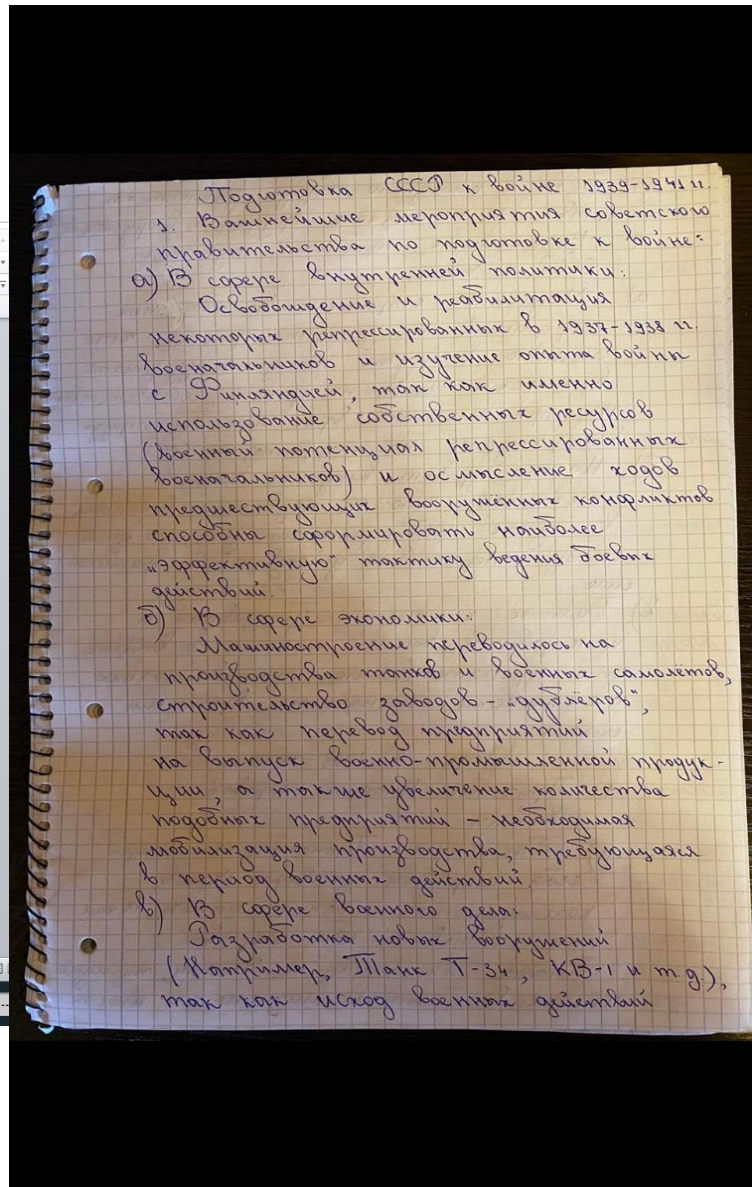 Подготовка СССР к войне 1939-1941 гг.
1. Важнейшие мероприятия советского
правительства по подготовке к войне:
а) В сфере внутренней политики:
Освобождение и реабилитация
некоторых репрессированных в 1937-1938 гг.
военачальников и изучение опыта войны
с Финляндией, так как именно
использование собственных ресурсов
(военный потенциал репрессированных
военачальников) и осмысление ходов
предшествующих вооружённых конфликтов
способны сформировать наиболее
„эффективную“ тактику ведения боевых
действий.
б) В сфере экономики:
Машиностроение переводилось на
производства танков и военных самолётов,
строительство заводов - „дублёров“,
так как перевод предприятий
на выпуск военно-промышленной продук-
ции, а также увеличение количества
подобных предприятий - необходимая
мобилизация производства, требующаяся
в период военных действий.
в) В сфере военного дела:
Разработка новых вооружений
(Например, Танк Т-34, КВ-1 и т.д),
так как исход военных действий